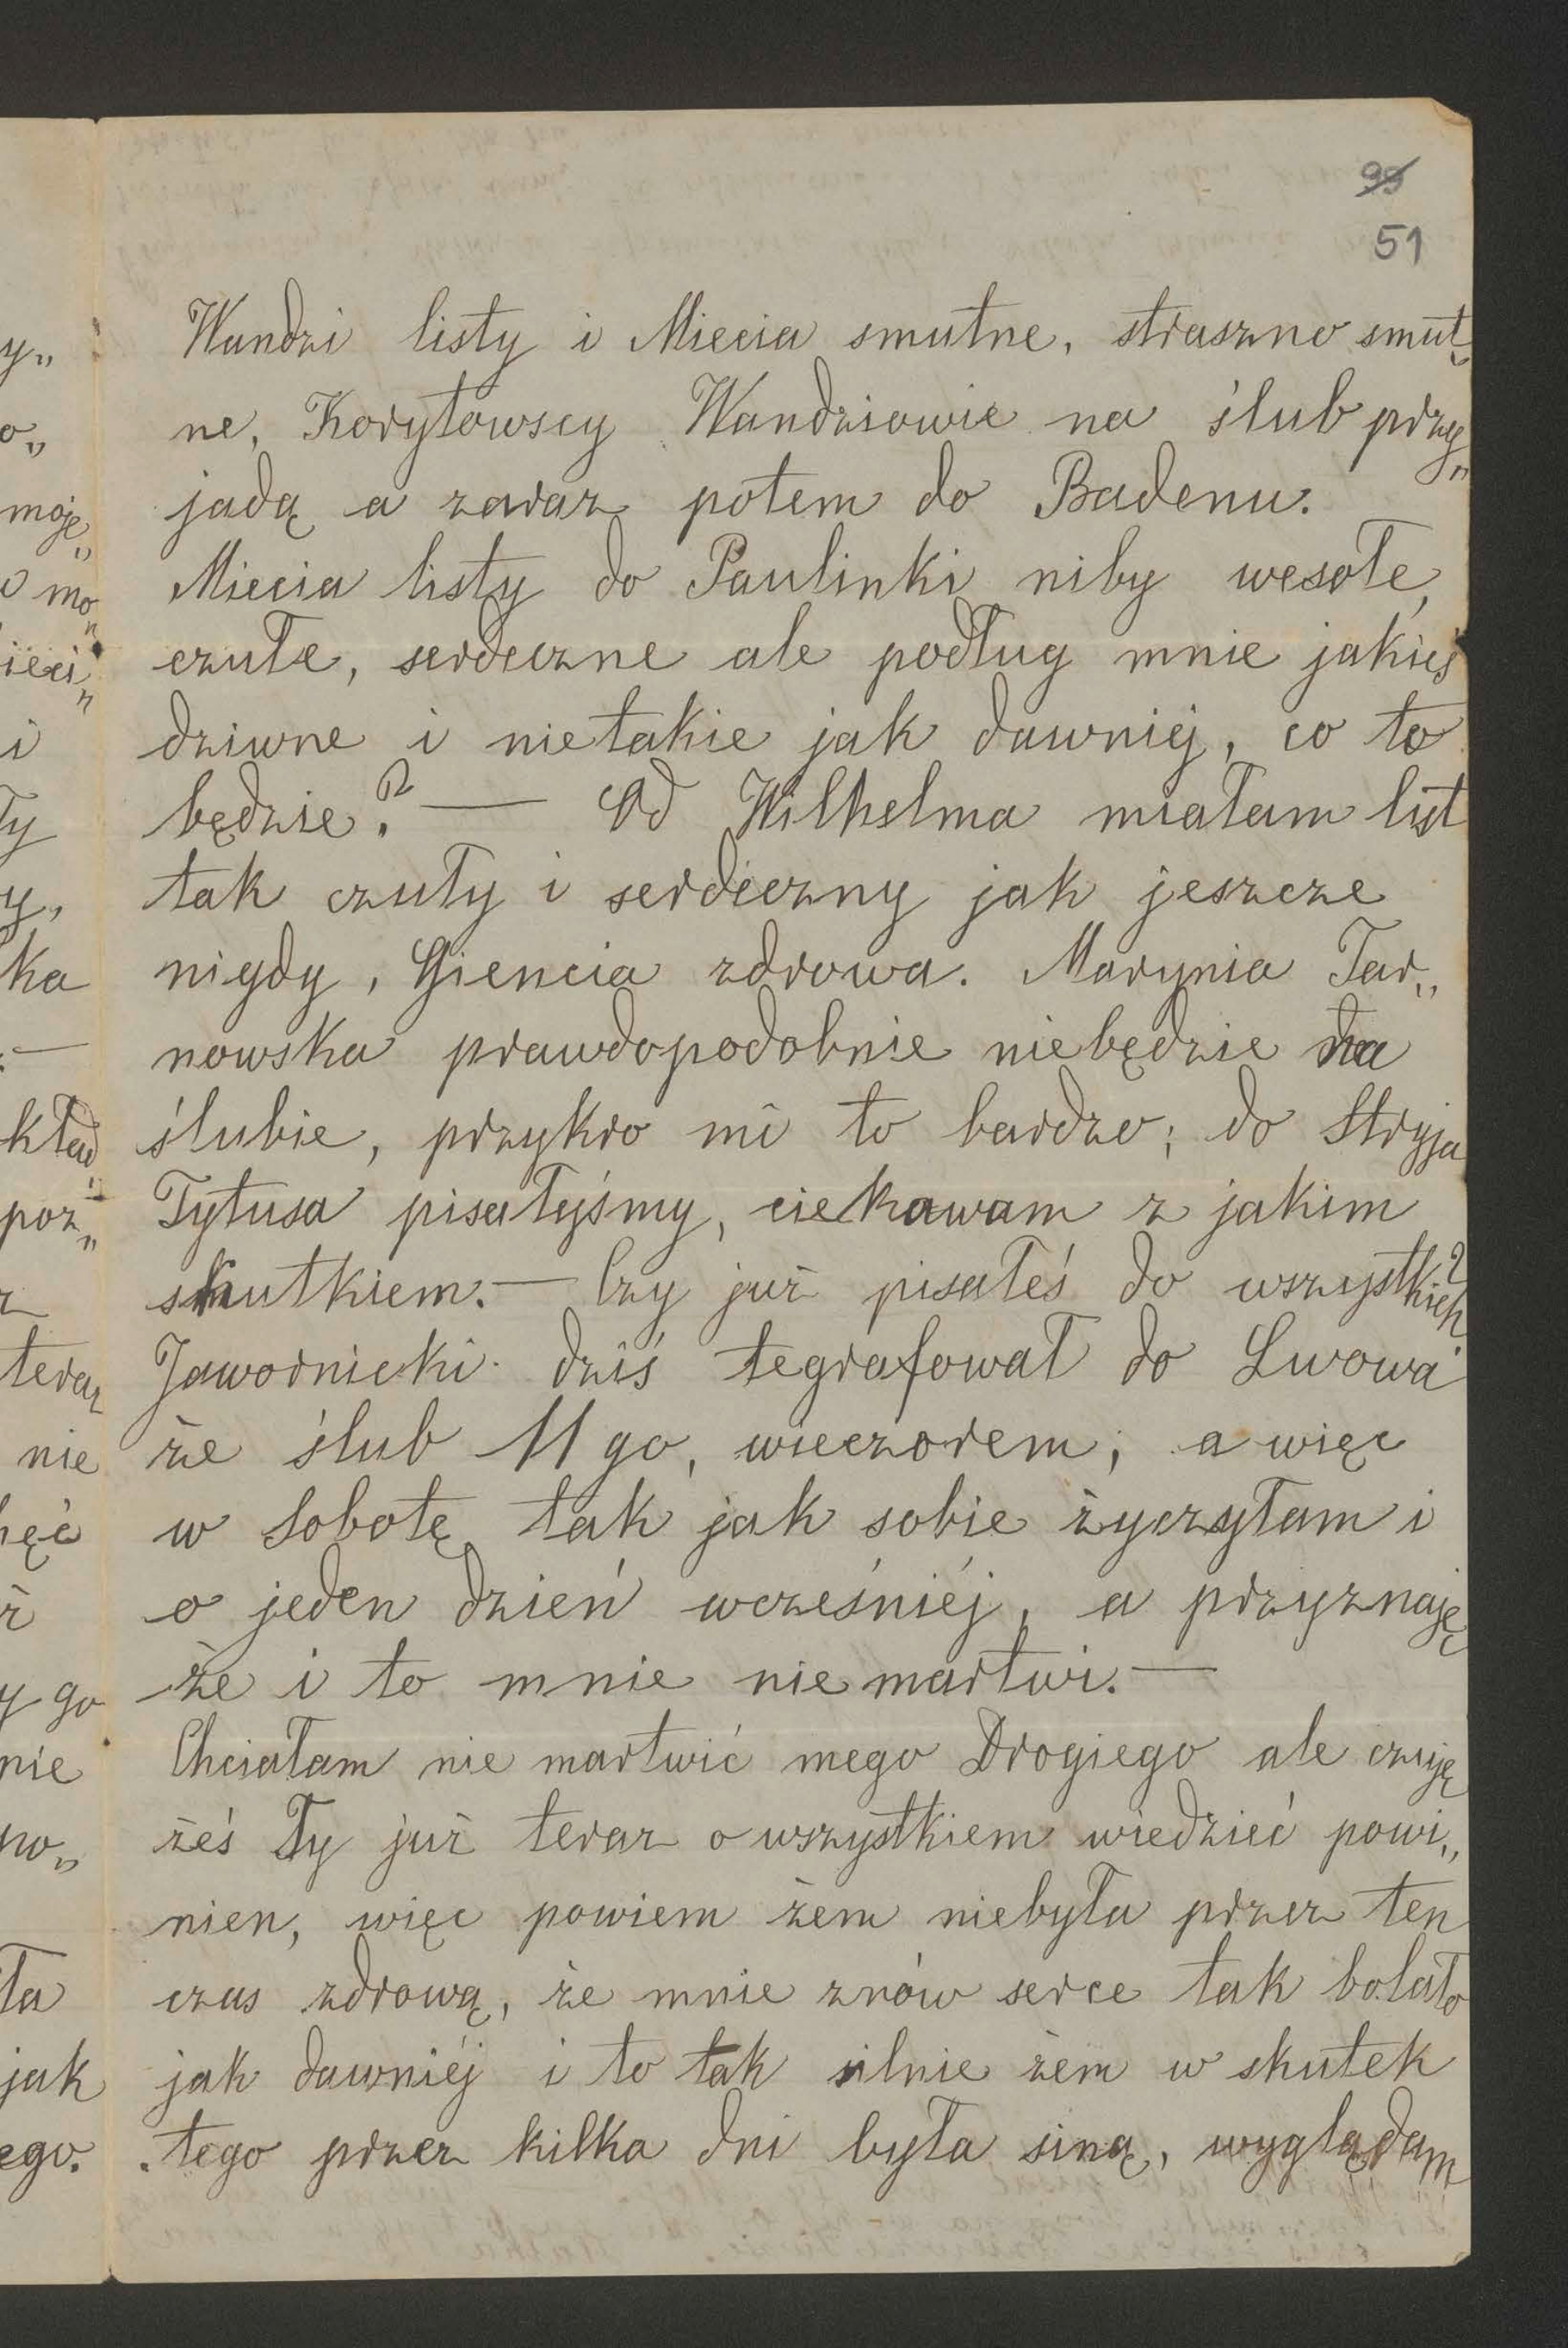 99
51
Wandzi listy i Miecia smutne, straszno smut„
ne, Korytowscy Wandziowie na ślub przy„
jadą a zaraz potem do Badenu.
Miecia listy do Paulinki niby wesołe,
czułe, serdeczne ale podług mnie jakieś
dziwne i nietakie jak dawniej, co to
będzie? — Od Wilhelma miałam list
tak czuły i serdeczny jak jeszcze
nigdy, Giencia zdrowa. Marynia Tar„
nowska prawdopodobnie niebędzie na
ślubie, przykro mi to bardzo; do Stryja
Tytusa pisałyśmy, ciekawam z jakim
skutkiem. — Czy już pisałeś do wszystkich?
Jawornicki dziś tegrafował do Lwowa
że ślub 11go, wieczorem; a więc
w Sobotę tak jak sobie życzyłam i
o jeden dzień wcześniéj, a przyznaję
że i to mnie niemartwi. —
Chciałam nie martwić mego Drogiego ale czuję
żeś Ty już teraz o wszystkiem wiedzieć powi„
nien, więc powiem żem niebyła przez ten
czas zdrową, że mnie znów serce tak bolało
jak dawniéj i to tak silnie żem w skutek
tego przez kilka dni była siną, wyglądam
y„
o„
moje„
mo„
ieci„
i
ły
y,
ka
—
kład„
poz„
z
teraz
nie
hęć
ż
y go
nie
no„
ła
jak
ego.